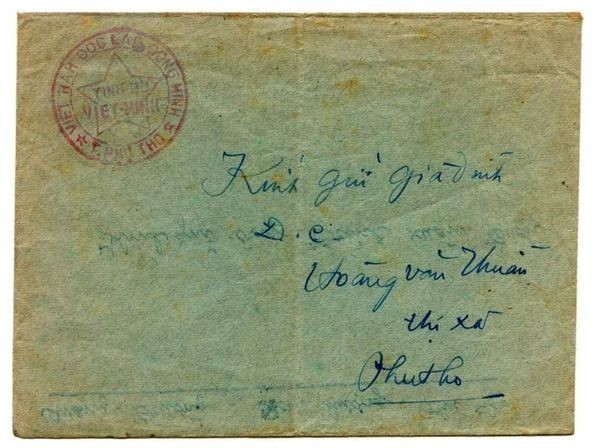 VIỆT NAM ĐỘC LẬP ĐỒNG MINH
TỈNH BỘ
VIỆT-MINH
T. PHÚ THỌ
Kính gửi gia đình
Đ.C.
Hoàng văn Thuận
thị xã
Phú thọ